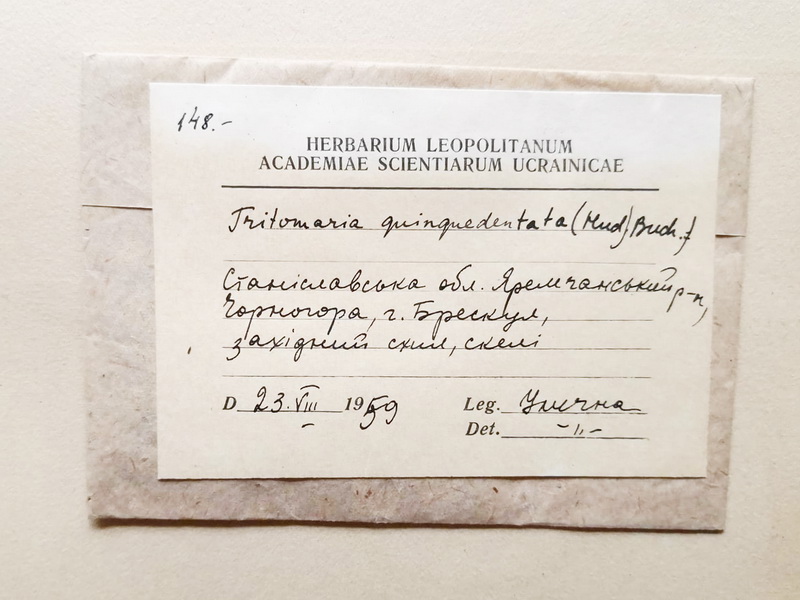 148.-
HERBARIUM LEOPOLITANUM
ACADEMIAE SCIENTIARUM UCRAINICAE
Tritomaria quinquedentata (Hud) Buch.
Станіславська обл. Яремчанський р-н,
Чорногора, г. Брескул,
західний схил, скелі
D 23.VIII 1959 Leg. Улична
Det. -"-